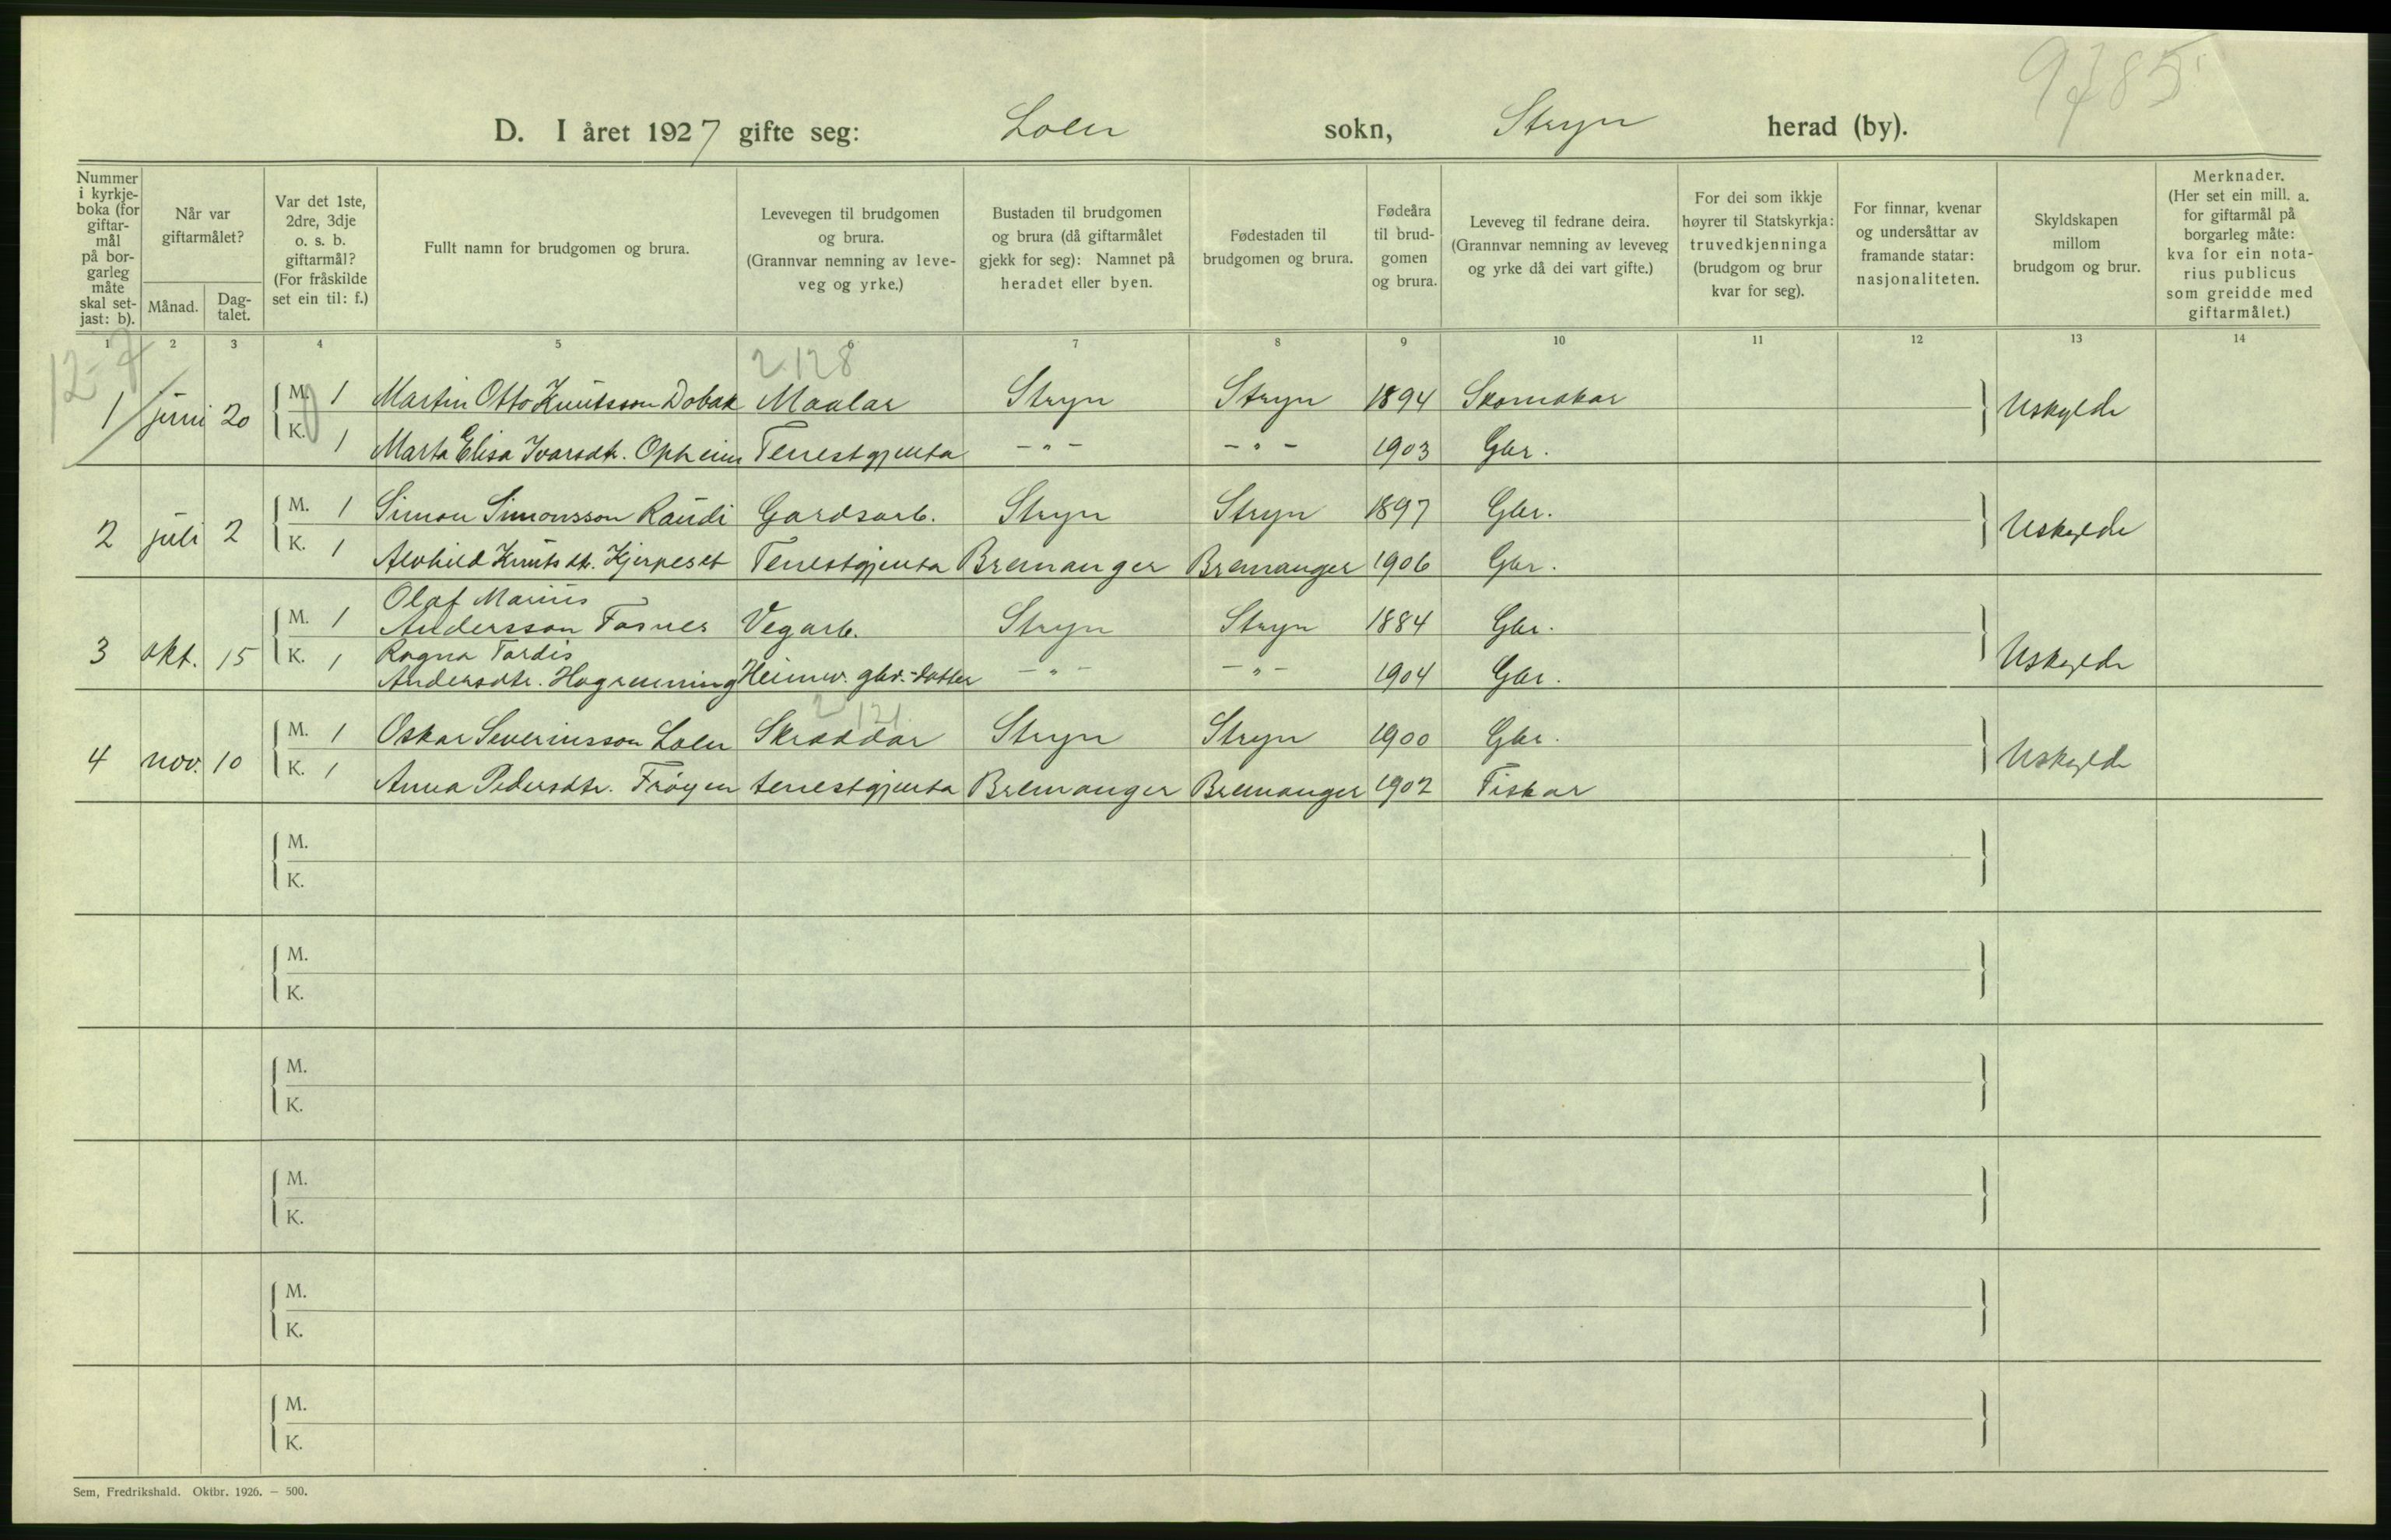 9785
D. I året 1927 gifte seg: Loen sokn, Stryn herad (by).
Nummer i kyrkje-boka (for giftar-mål på bor-garleg måte skal set-jast: b). | Når var giftarmålet? Månad. | Dag-talet. | Var det 1ste, 2dre, 3dje o. s. b. giftarmål? (For fråskilde set ein til: f.) | Fullt namn for brudgomen og brura. | Levevegen til brudgomen og brura. (Grannvar nemning av leve-veg og yrke.) | Bustaden til brudgomen og brura (då giftarmålet gjekk for seg): Namnet på heradet eller byen. | Fødestaden til brudgomen og brura. | Fødeåra til brud-gomen og brura. | Leveveg til fedrane deira. (Grannvar nemning av leveveg og yrke då dei vart gifte.) | For dei som ikkje høyrer til Statskyrkja: truvedkjenninga (brudgom og brur kvar for seg). | For finnar, kvenar og undersåttar av framande statar: nasjonaliteten. | Skyldskapen millom brudgom og brur. | Merknader. (Her set ein mill. a. for giftarmål på borgarleg måte: kva for ein nota-rius publicus som greidde med giftarmålet.)
1 2 3 4 5 6 7 8 9 10 11 12 13 14
12-7 2128
1 juni 20 M. 1 Martin Otto Knutsson Dobak Maalar Stryn Stryn 1894 Skomakar Uskylde
K. 1 Marta Elisa Ivarsdtr. Opheim Tenestgjenta -"- -"- 1903 Gbr.
2 juli 2 M. 1 Simon Simonsson Raudi Gardsarb. Stryn Stryn 1897 Gbr. Uskylde
K. 1 Alvhild Knutsdtr. Hjerpeset Tenestgjenta Bremanger Bremanger 1906 Gbr.
Olaf Marius
3 okt. 15 M. 1 Andersson Fosnes Vegarb. Stryn Stryn 1884 Gbr. Uskylde
K. 1 Ragna Tordis
Andersdtr. Hogrenning Heimev. gbr.-dotter -"- -"- 1904 Gbr.
2 121
4 nov. 10 M. 1 Oskar Severinsson Loen Skraddar Stryn Stryn 1900 Gbr. Uskylde
K. 1 Anna Pedersdtr. Frøyen tenestgjenta Bremanger Bremanger 1902 Fiskar
M.
K.
M.
K.
M.
K.
M.
K.
M.
K.
M.
K.
Sem, Fredrikshald. Oktbr. 1926. — 500.